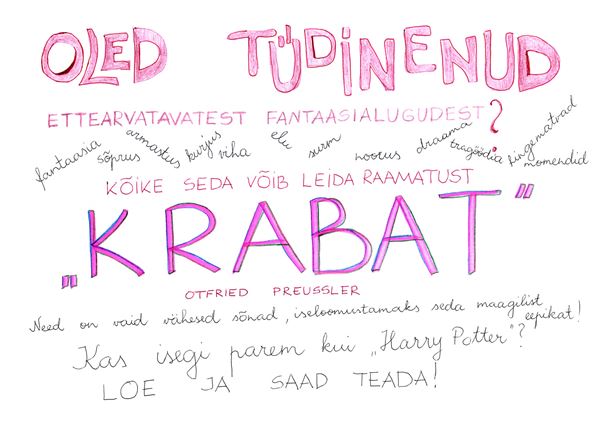 OLED TÜDINENUD
ETTEARVATAVATEST FANTAASIALUGUDEST?
fantaasia sõprus armastus kurjus viha elu surm noorus draama tragöödia hingematvad momendid
KÕIKE SEDA VÕIB LEIDA RAAMATUST
„KRABAT"
OTFRIED PREUSSLER
Need on vaid vähesed sõnad, iseloomustamaks seda maagilist eepikat!
Kas isegi parem kui „Harry Potter"?
LOE JA SAAD TEADA!